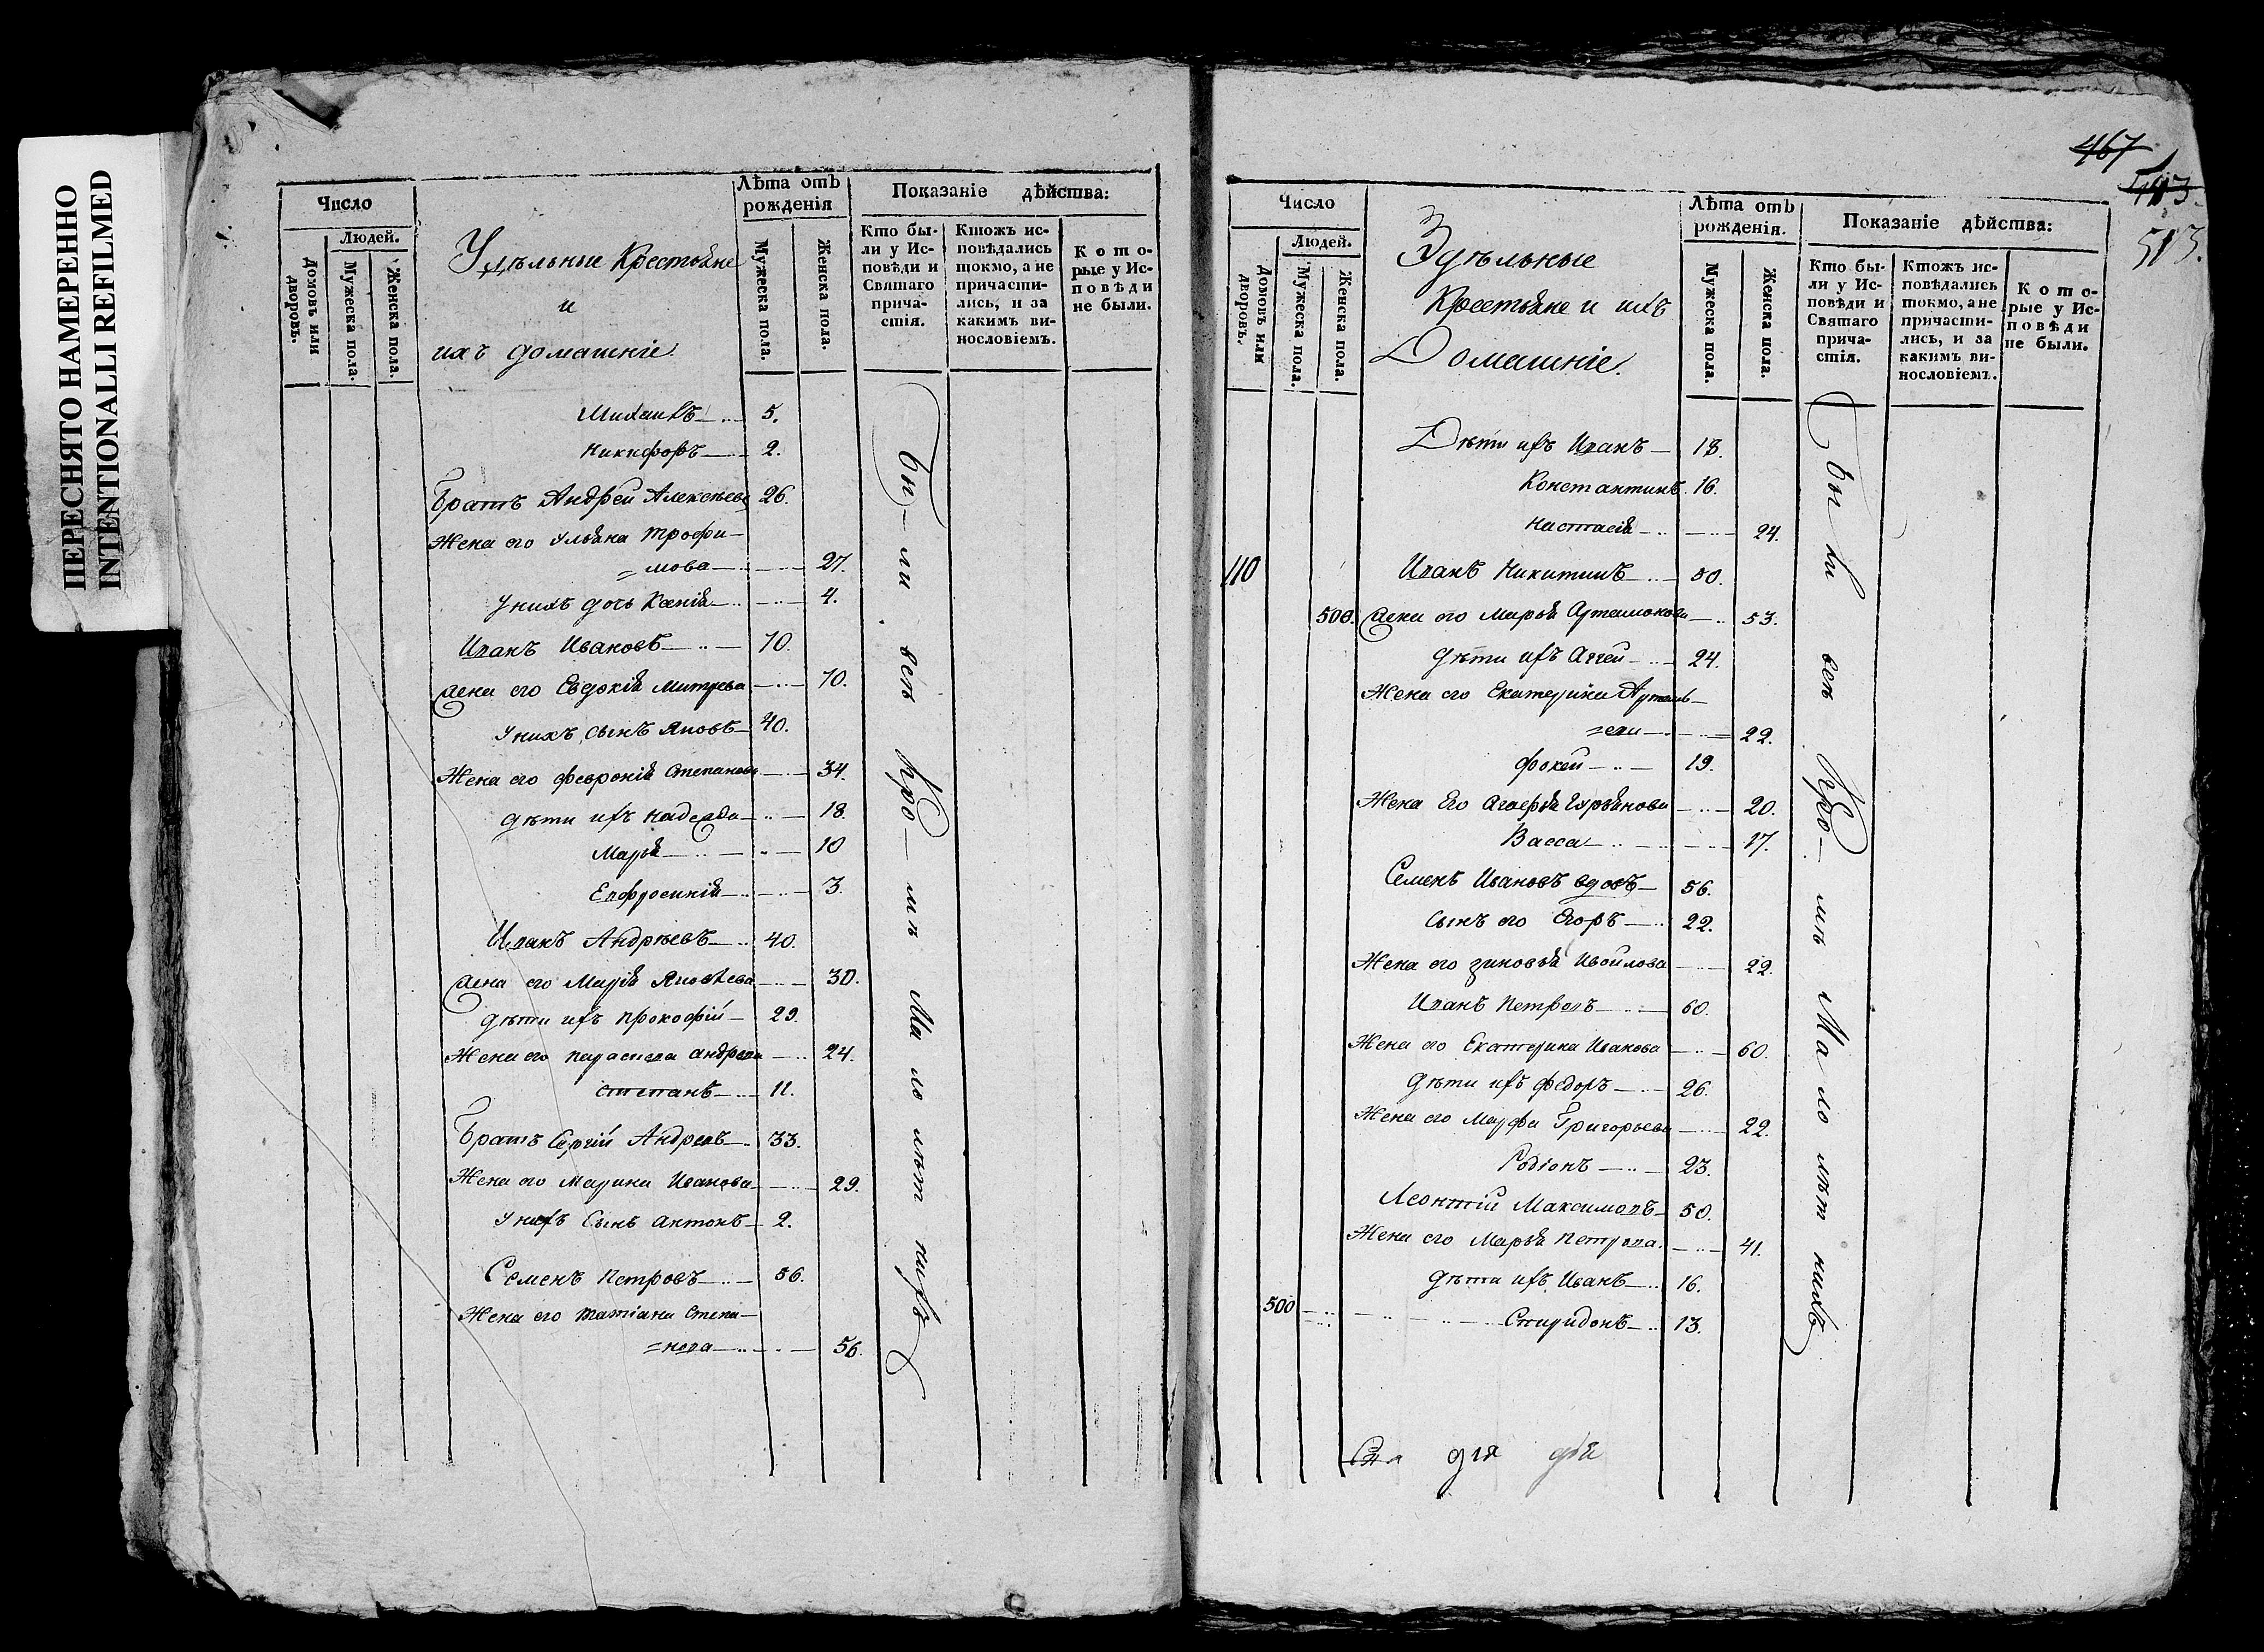 ПЕРЕСНЯТО НАМЕРЕННО
INTENTIONALLI REFILMED
Число
Людей.
Домовъ или дворовъ.
Мужеска пола.
Женска пола.
Удѣльныи Крестьяне
и
ихъ домашніе.
Лѣта отъ
рожденія
Мужеска пола.
Женска пола.
Показаніе дѣйства:
Кто бы-
ли у Ис-
повѣди и
Святаго
прича-
стія.
Ктожъ ис-
повѣдались
токмо, а не
причасти-
лись, и за
какимъ ви-
нословіемъ.
Кото-
рые у Ис-
повѣди
не были.
Михаилъ 5.
Никифоръ 2.
Братъ Андрей Алексѣевъ 26.
Жена его Ульяна Трофи-
=мова 27.
У нихъ дочь Ксенія 4.
Иванъ Ивановъ 70.
Жена его Евдокія Митрева 70.
У нихъ сынъ Яковъ 40.
Жена его Февронія Степанова 34.
Дѣти ихъ Надежда 18.
Марья 10
Евфросинія 3.
Иванъ Андрѣевъ 40.
Жена его Марія Яковлева 30.
Дѣти ихъ Прокофій 29.
Жена его Параскева Андреева 24.
Степанъ 11.
Братъ Сергій Андреевъ 33.
Жена его Марина Иванова 29.
У нихъ Сынъ Антонъ 2.
Семенъ Петровъ 56.
Жена его Татіана Степа-
=нова 56.
Бы-ли всѣ кро-мѣ Ма ло лѣт нихъ
467
513.
Число
Людей.
Домовъ или дворовъ.
Мужеска пола.
Женска пола.
Удѣльные
Крестьяне и ихъ
Домашніе.
Лѣта отъ
рожденія.
Мужеска пола.
Женска пола.
Показаніе дѣйства:
Кто бы-
ли у Ис-
повѣди и
Святаго
прича-
стія.
Ктожъ ис-
повѣдались
токмо, а не
причасти-
лись, и за
какимъ ви-
нословіемъ.
Кото-
рые у Ис-
повѣди
не были.
Дѣти ихъ Иванъ 18.
Константинъ 16.
Настасія 24.
110 Иванъ Никитинъ 50.
500. Жена его Марья Артамонова 53.
Дѣти ихъ Аггей 24.
Жена его Екатерина
22.
Фокей 19.
Жена Его Агафья 20.
Васса 17.
Семенъ Ивановъ вдовъ 56.
Сынъ его Егоръ 22.
Жена его Зиновья 22.
Иванъ Петровъ 60.
Жена его Екатерина Иванова 60.
Дѣти ихъ Федоръ 26.
Жена его Марфа Григорьева 22.
Родіонъ 23.
Леонтій Максимовъ 50.
Жена его Марья Петрова 41.
Дѣти ихъ Иванъ 16.
500 Спиридонъ 13.
Бы ли всѣ Кро-мѣ Ма ло лѣт нихъ
для